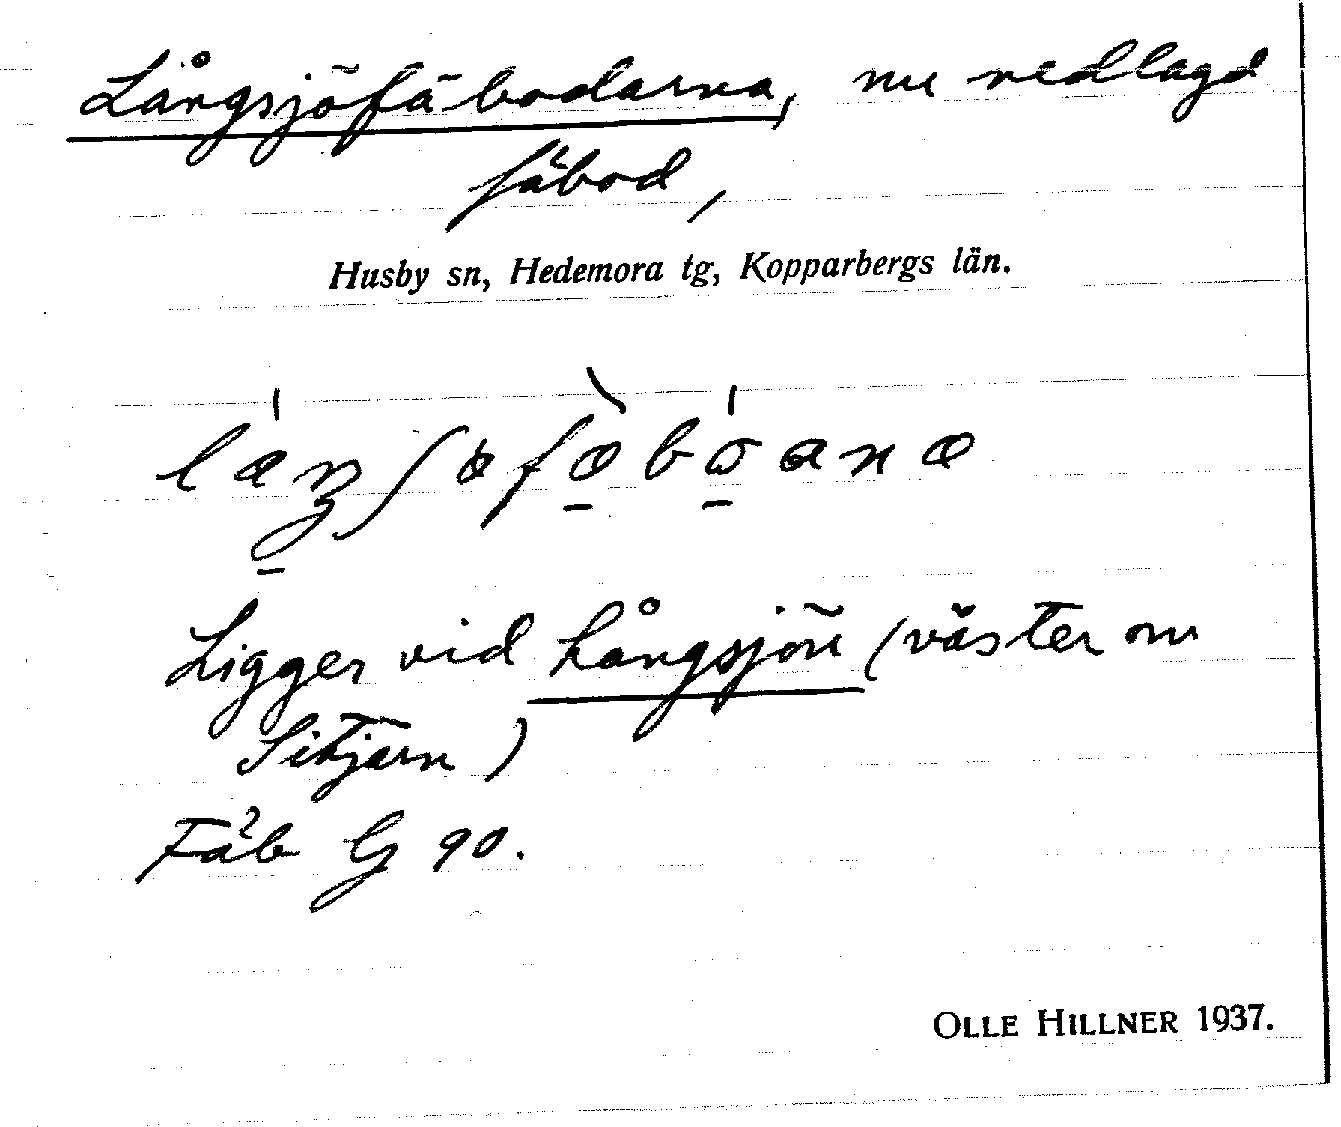 Långsjöfäbodarna, nu nedlagd
fäbod,
Husby sn, Hedemora tg, Kopparbergs län.
Ligger vid Långsjön (väster om
Sitjärn)
Fäb G 90.
OLLE HILLNER 1937.